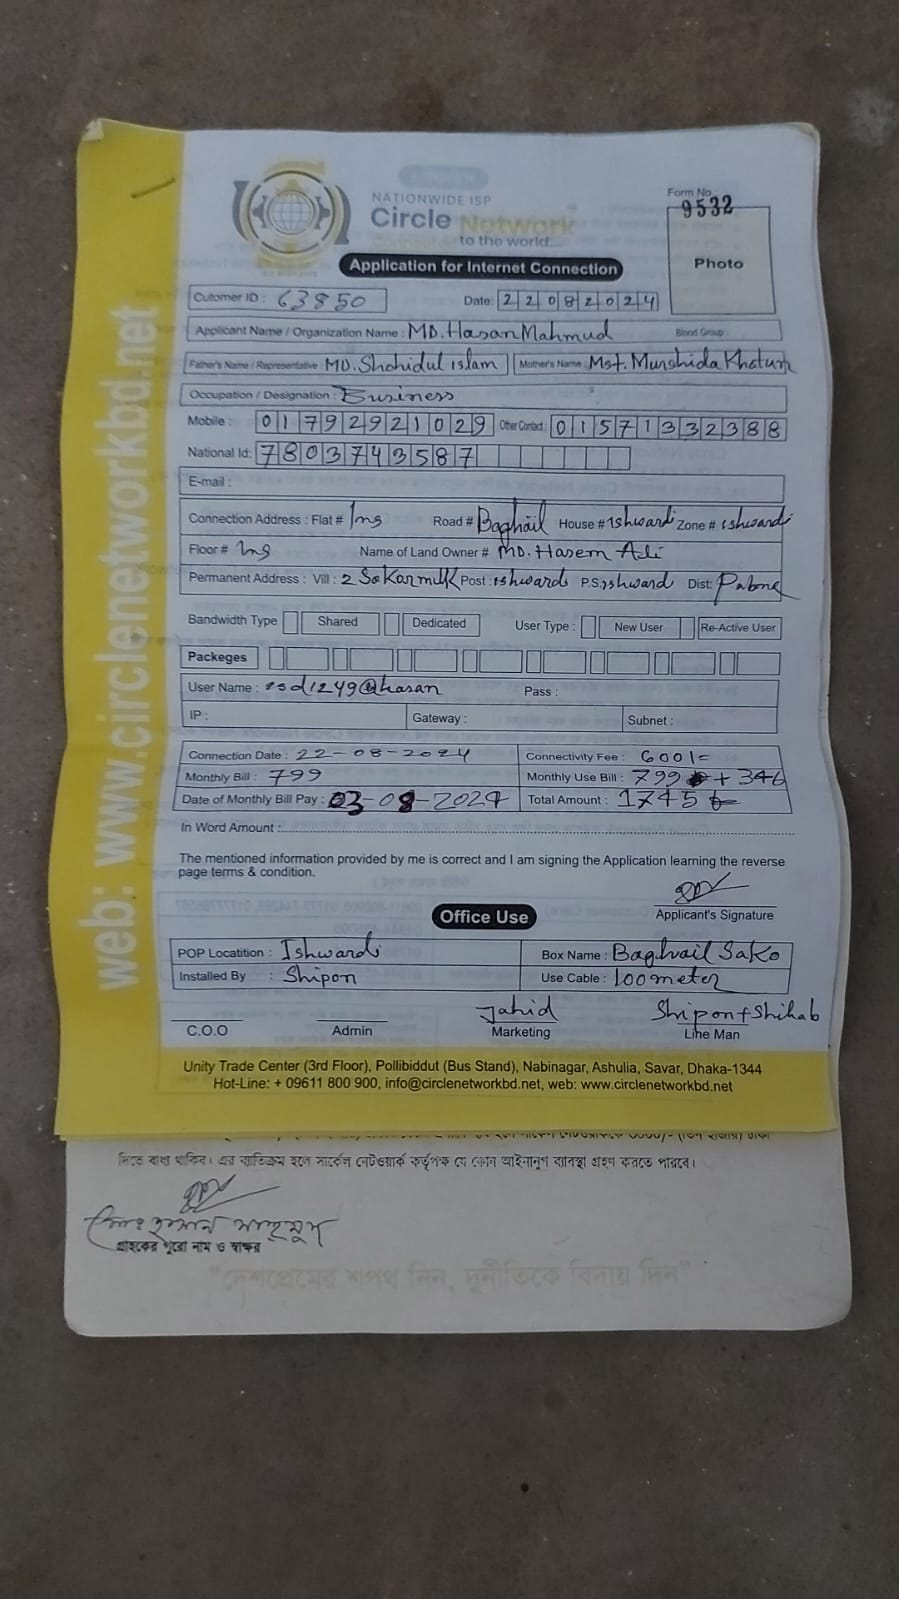 Form No.
9532
NATIONWIDE ISP
Circle Network
to the world
Photo
Application for Internet Connection
Cutomer ID : 63850 Date: 22082024
Applicant Name / Organization Name : MD. Hasan Mahmud Blood Group :
Father's Name / Representative : MD. Shohidul islam Mother's Name : Mst. Munshida Khatun
Occupation / Designation : Business
Mobile : 01792921029 Other Contact : 01571332388
National Id: 7803743587
E-mail :
Connection Address : Flat # Ing Road # Baghail House # ishwardi Zone # ishwardi
Floor # Ing Name of Land Owner # MD. Hasem Ali
Permanent Address : Vill : 2 Sakormulk Post : ishwardi P.S. ishward Dist: Pabna
Bandwidth Type Shared Dedicated User Type : New User Re-Active User
Packeges
User Name : isd1249@hasan Pass :
IP : Gateway : Subnet :
Connection Date : 22-08-2024 Connectivity Fee : 600/=
Monthly Bill : 799 Monthly Use Bill : 799 + 346
Date of Monthly Bill Pay : 03-09-2024 Total Amount : 1745
In Word Amount :
The mentioned information provided by me is correct and I am signing the Application learning the reverse
page terms & condition.
Applicant's Signature
Office Use
POP Locatition : Ishwardi Box Name : Baghail Sako
Installed By : Shipon Use Cable : 100 meter
Jahid Shipon + Shihab
C.O.O Admin Marketing Line Man
Unity Trade Center (3rd Floor), Pollibiddut (Bus Stand), Nabinagar, Ashulia, Savar, Dhaka-1344
Hot-Line: + 09611 800 900, info@circlenetworkbd.net, web: www.circlenetworkbd.net
web: www.circlenetworkbd.net
দিতে বাধ্য থাকিব। এর ব্যতিক্রম হলে সার্কেল নেটওয়ার্ক কর্তৃপক্ষ যে কোন আইনানুগ ব্যবস্থা গ্রহণ করতে পারবে।
মোঃ হাসান মাহমুদ
গ্রাহকের পুরো নাম ও স্বাক্ষর
"দেশপ্রেমের শপথ নিন, দুর্নীতিকে বিদায় দিন"